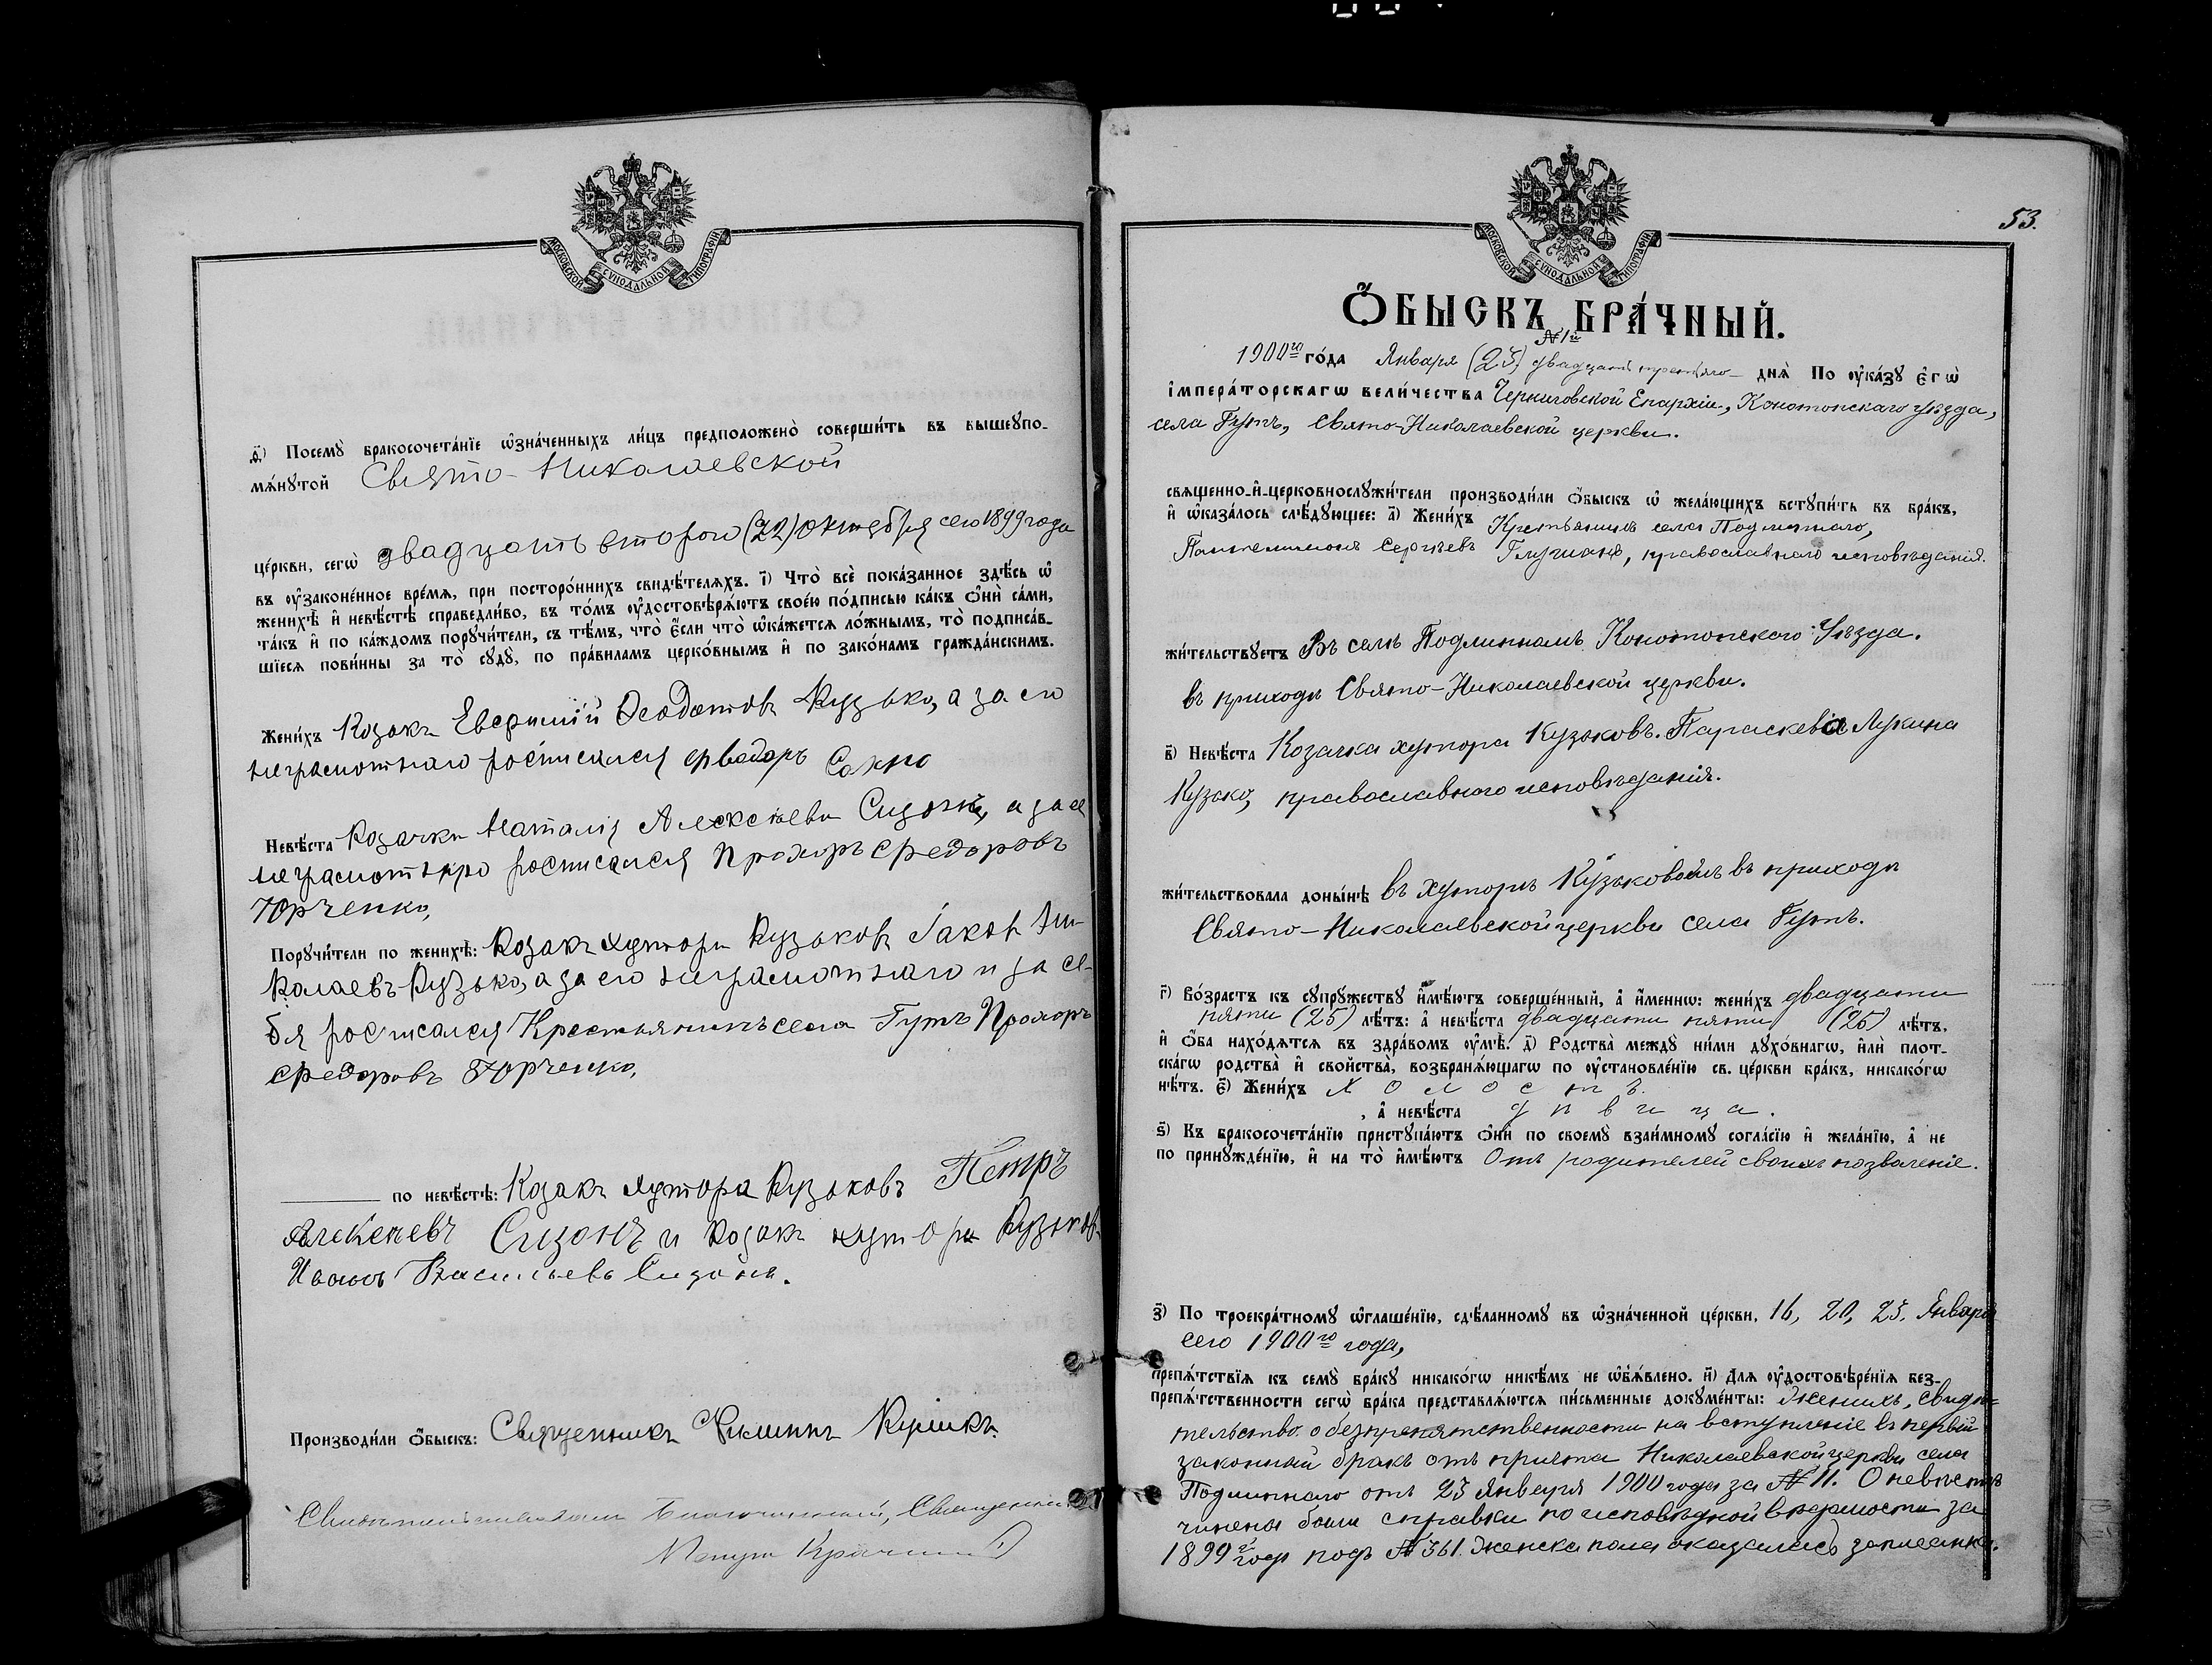 МОСКОВСКОЙ СѴНОДАЛЬНОЙ ТИПОГРАФІИ
д҃) Посемꙋ̀ бракосочета́нїе ѡ҆зна́ченныхъ ли́цъ предположено̀ соверши́ть въ вышеꙋпо-
мѧ́нꙋтой Свято-Николаевской
це́ркви, сегѡ̀ двадцать второго (22) октября сего 1899 года
въ ᲂу҆зако́ненное вре́мѧ, при посторо́ннихъ свидѣ́телѧхъ. і҃) Что̀ всѐ пока́занное здѣ́сь ѡ҆
женихѣ̀ и҆ невѣ́стѣ справедли́во, въ то́мъ ᲂу҆достовѣрѧ́ютъ свое́ю по́дписью ка́къ ѻ҆нѝ са́ми,
та́къ и҆ по ка́ждомъ порꙋчи́тели, съ тѣ́мъ, что̀ є҆́сли что̀ ѡ҆ка́жетсѧ ло́жнымъ, то̀ подписа́в-
шїесѧ пови́нны за то̀ сꙋдꙋ̀, по пра́виламъ церко́внымъ и҆ по зако́намъ гражда́нскимъ.
Жени́хъ Козакъ Евфимій Ѳеодотовъ Кузько, а за его
неграмотнаго росписался Ѳеодоръ Сахно
Невѣ́ста Козачка Наталія Алексѣева Сизонъ, а за ее
неграмотную росписался Прохоръ Федоровъ
Юрченко,
Порꙋчи́тели по женихѣ̀: Козакъ хутора Кузьковъ Іаковъ Ни-
колаевъ Кузько, а за его неграмотнаго и за се-
бя росписался Крестьянинъ села Гутъ Прохоръ
Федоровъ Юрченко,
по невѣ́стѣ: Козакъ хутора Кузьковъ Петръ
Алексѣевъ Сизонъ и Козакъ хутора Кузьковъ
Иванъ Васильевъ Сизонъ.
Производи́ли ѻ҆́быскъ: Священникъ Филиппъ
Благочинный, Священникъ
53.
МОСКОВСКОЙ СѴНОДАЛЬНОЙ ТИПОГРАФІИ
Ѻ҆́БЫСКЪ БРА́ЧНЫЙ.
№ 1й
1900го го́да Января (23) двадцать третьяго днѧ̀ По ᲂу҆ка́зꙋ є҆гѡ̀
і҆мпера́торскагѡ вели́чества Черниговской Епархіи, Конотопскаго уѣзда,
села Гутъ, Свято-Николаевской церкви.
свѧще́нно-и҆-церковнослꙋжи́тели производи́ли ѻ҆́быскъ ѡ҆ жела́ющихъ встꙋпи́ть въ бра́къ,
и҆ ѡ҆каза́лось слѣ́дꙋющее: а҃) Жени́хъ Крестьянинъ села Подлипнаго,
Пантелимонъ Сергѣевъ православнаго исповѣданія.
жи́тельствꙋетъ Въ селѣ Подлипномъ Конотопскаго Уѣзда.
въ приходѣ Свято-Николаевской церкви.
в҃) Невѣ́ста Козачка хутора Кузьковъ. Параскева Лукина
Кузько, православнаго исповѣданія.
жи́тельствовала доны́нѣ въ хуторѣ Кузьковомъ въ приходѣ
Свято-Николаевской церкви села Гутъ.
г҃) Во́зрастъ къ сꙋпрꙋ́жествꙋ и҆мѣ́ютъ соверше́нный, а҆ и҆́меннѡ: жени́хъ двадцати
пяти (25) лѣ́тъ: а҆ невѣ́ста двадцати пяти (25) лѣ́тъ,
и҆ ѻ҆́ба нахо́дѧтсѧ въ здра́вомъ ᲂу҆мѣ̀. д҃) Родства̀ междꙋ̀ ни́ми дꙋхо́внагѡ, и҆лѝ плот-
ска́гѡ родства̀ и҆ свойства̀, возбранѧ́ющагѡ по ᲂу҆становле́нїю св. це́ркви бра́къ, никако́гѡ
нѣ́тъ. є҃) Жени́хъ Холостъ
, а҆ невѣ́ста дѣвица.
ѕ҃) Къ бракосочета́нїю пристꙋпа́ютъ ѻ҆нѝ по своемꙋ̀ взаи́мномꙋ согла́сїю и҆ жела́нїю, а҆ не
по принꙋжде́нїю, и҆ на то̀ и҆мѣ́ютъ Отъ родителей своихъ позволеніе.
з҃) По троекра́тномꙋ ѡ҆глаше́нїю, сдѣ́ланномꙋ въ ѡ҆зна́ченной це́ркви, 16, 20, 23, Января
сего 1900го года,
препѧ́тствїѧ къ семꙋ̀ бра́кꙋ никако́гѡ никѣ́мъ не ѡ҆б̾ѧ́влено. и҃) Длѧ ᲂу҆достовѣре́нїѧ без-
препѧ́тственности сегѡ̀ бра́ка представлѧ́ютсѧ пи́сьменные докꙋме́нты: Женихъ, свидѣ-
тельство о безпрепятственности на вступленіе въ первый
законный бракъ отъ причта Николаевской церкви села
Подлипнаго отъ 23 Января 1900 года за № 11. О невѣстѣ
чинены были справки по исповѣдной вѣдомости за
1899й годъ подъ № 361. женска пола оказалась записанна.